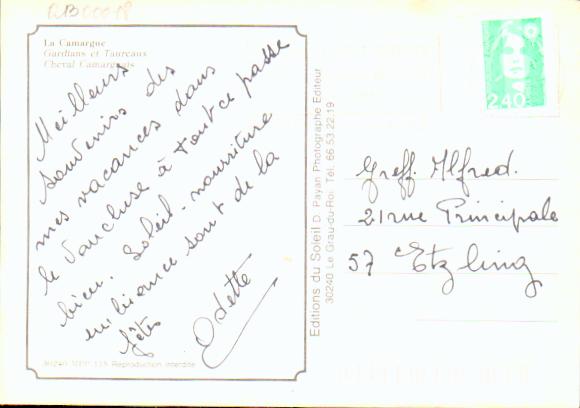 La Camargue
Gardians et Taureaux
Cheval Camarguais
Meilleurs
souvenirs des
mes vacances dans
le Vaucluse à tout ce passe
bien. Soleil - nourriture
embiance sont de la
fêtes
Odette
30240 Reproduction interdite
Editions du Soleil D. Payan Photographe Editeur
30240 Le Grau-du-Roi Tél. 66.53.22.19
2,40
Greff. Alfred.
21 rue Principale
57 Etzling